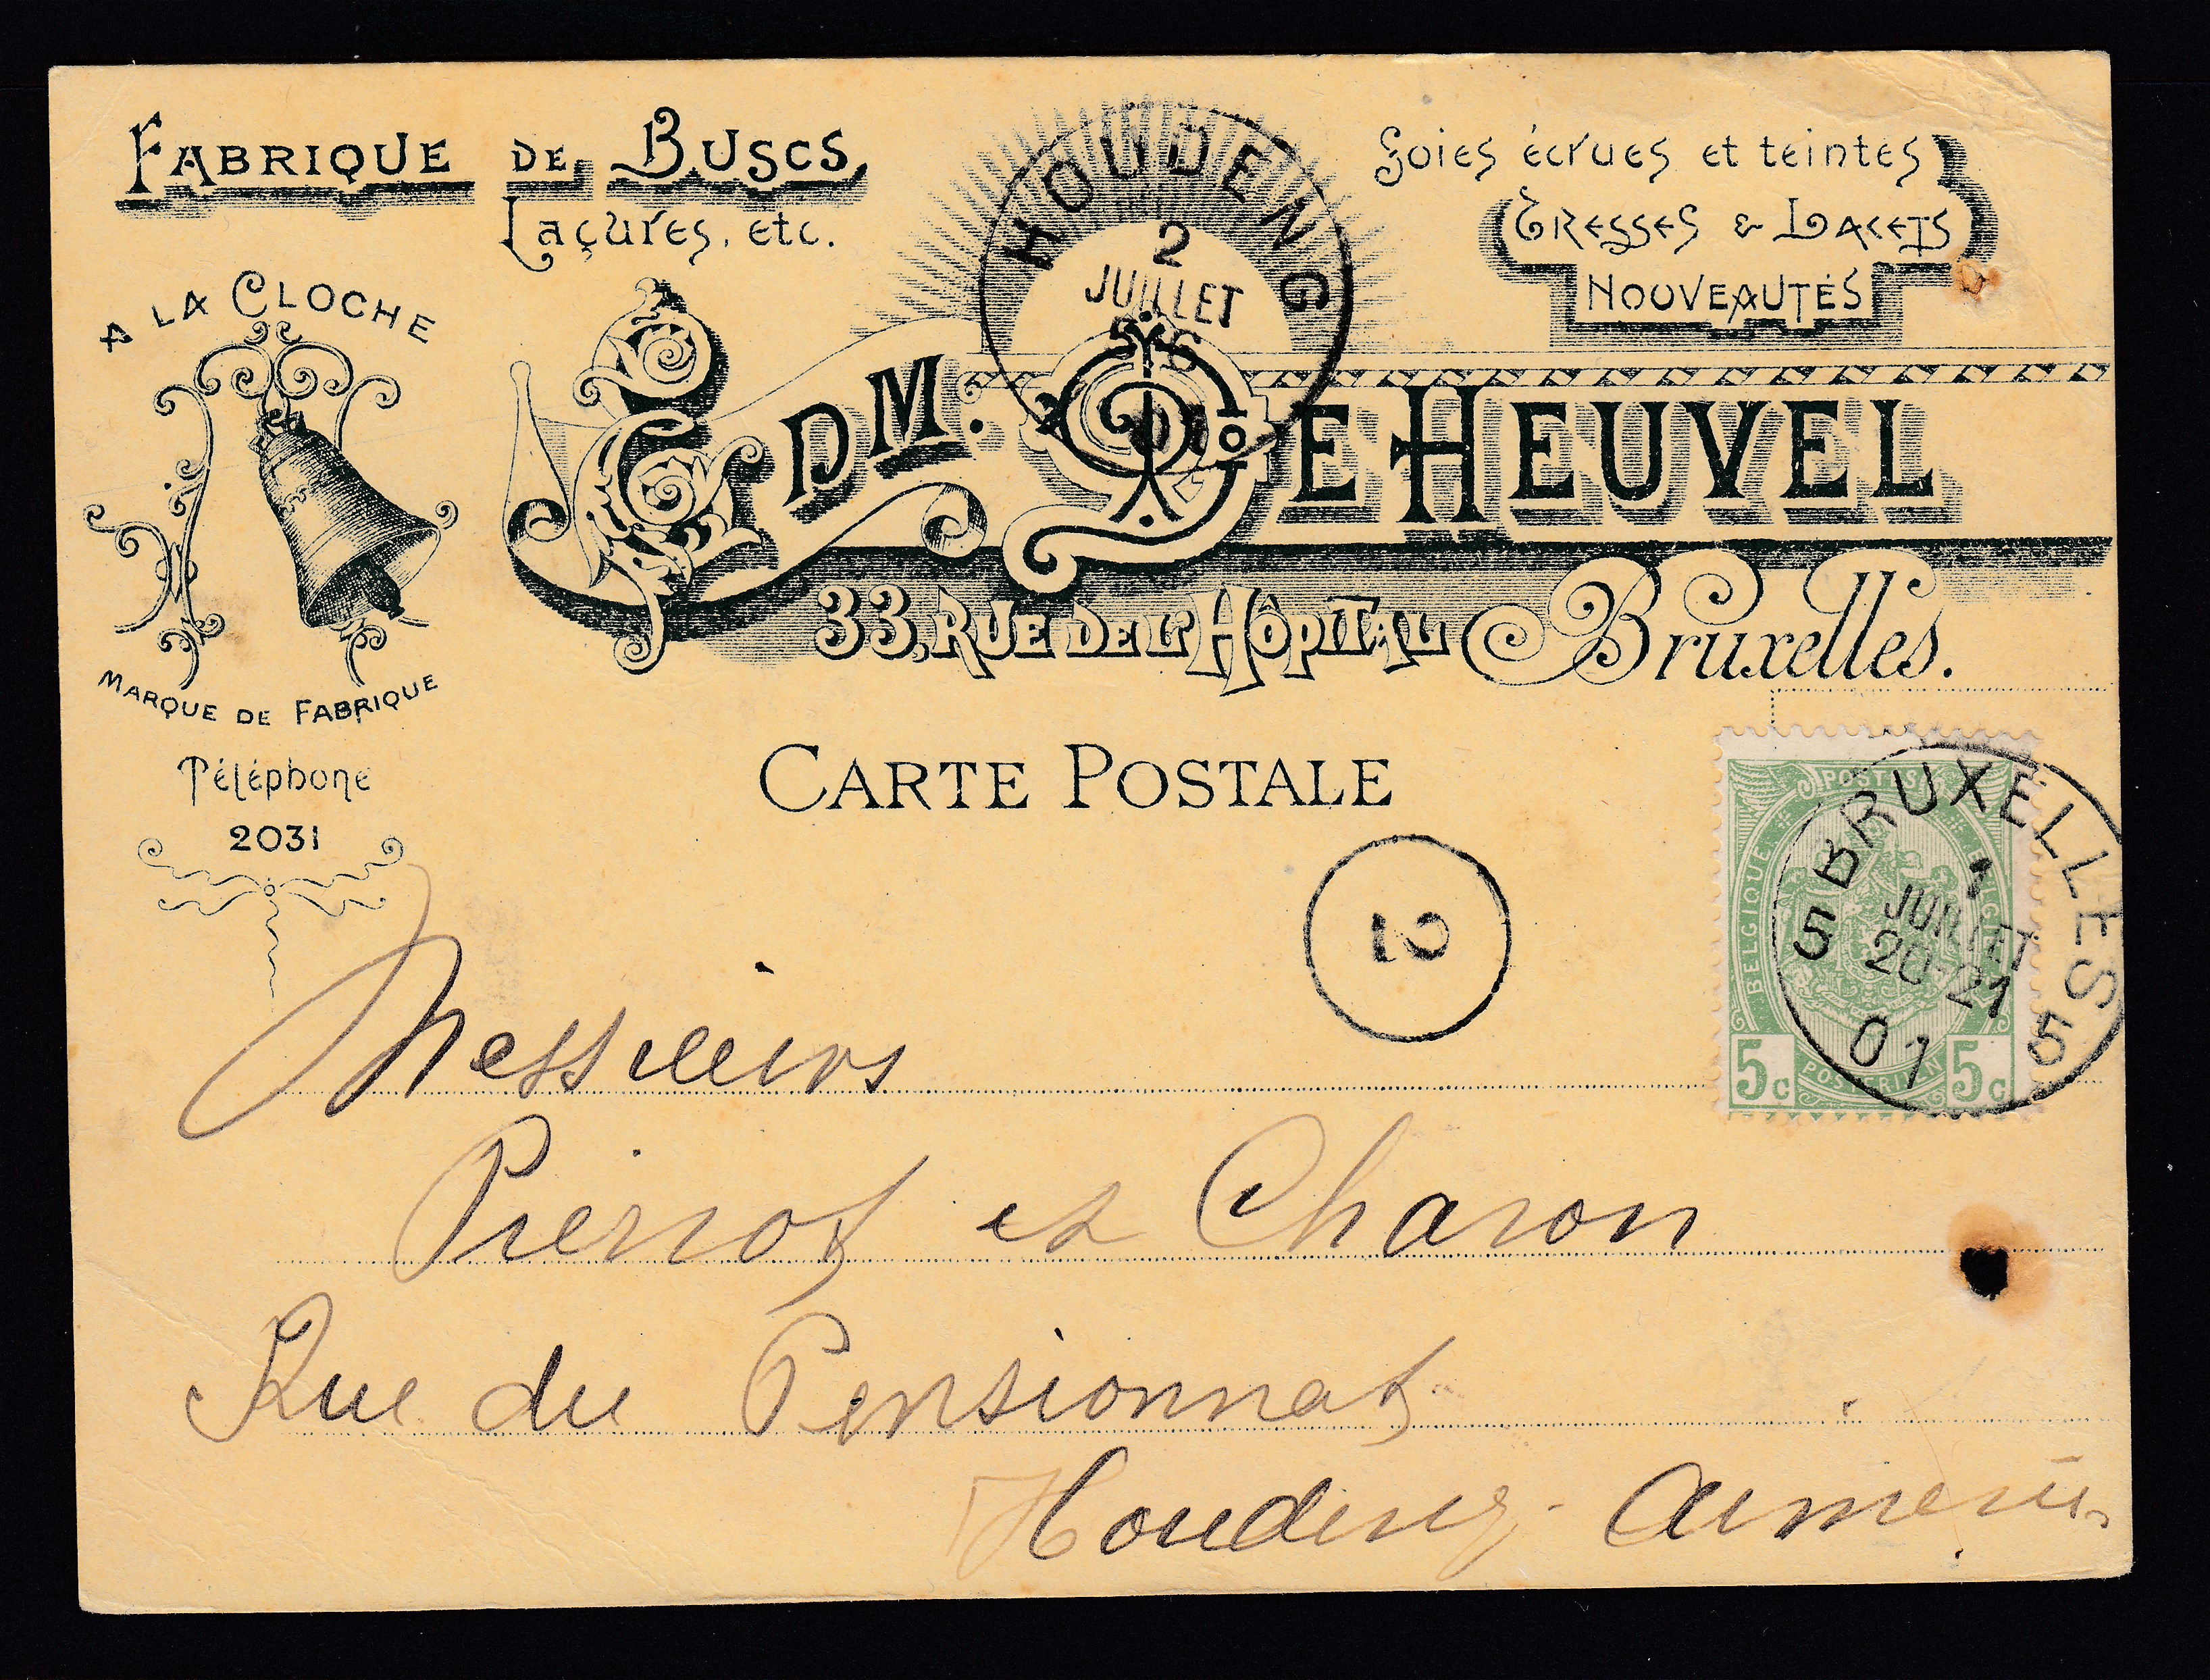 FABRIQUE DE BUSCS,
Laçures, etc.
Soies écrues et teintes
TRESSES & LACETS
NOUVEAUTÉS
A LA CLOCHE
MARQUE DE FABRIQUE
Téléphone
2031
EDM. DE HEUVEL
33, RUE DE L'HÔPITAL Bruxelles.
HOUDENG
2
JUILLET
CARTE POSTALE
POSTES
BELGIQUE
BELGIË
POSTERIJEN
5c 5c
BRUXELLES
5 5
1
JUILLET
20-21
01
2
Messieurs
Pierrot et Charon
Rue du Pensionnat
Houdeng-Aimeries